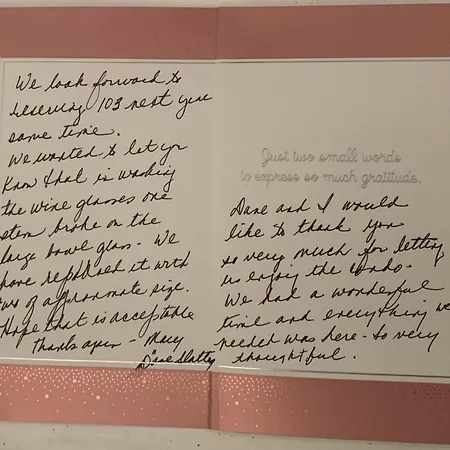 We look forward to
reserving 103 next year
same time.
We wanted to let you
know that in washing
the wine glasses one
stem broke on the
large bowl glass - We
have replaced it with
two of approximate size.
Hope that is acceptable
Thanks again - Mary
Dave Slatty
Just two small words
to express so much gratitude.
Dave and I would
like to thank you
so very much for letting
us enjoy the condo -
We had a wonderful
time and everything we
needed was here - so very
thoughtful.